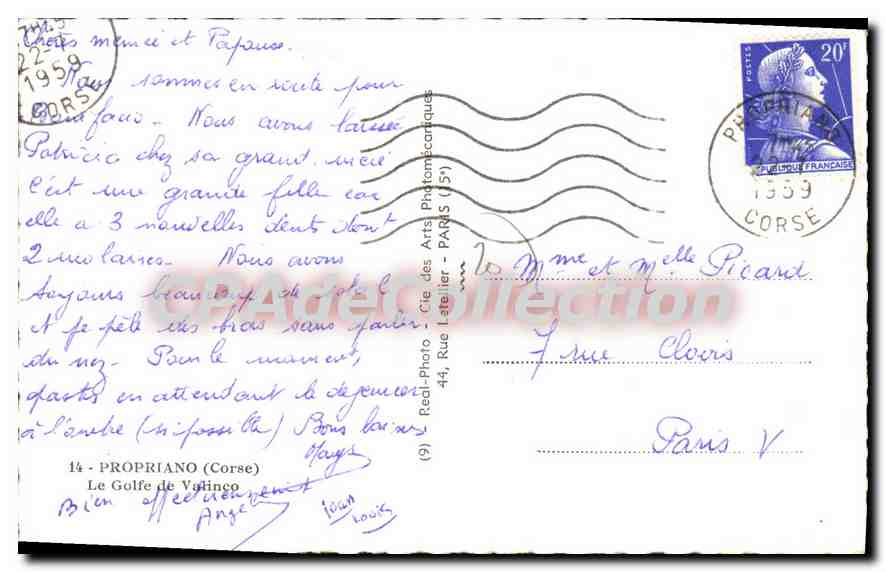 22-7
1959
CORSE
Chères mémée et Papouse.
Nous sommes en route pour
Bonifacio - Nous avons laissé
Patricia chez sa grand. mère
C'est une grande fille car
elle a 3 nouvelles dents dont
2 molaires - Nous avons
toujours beaucoup de soleil
et je pèle des bras sans parler
du nez - Pour le moment,
pastis en attendant le déjeuner
à l'ombre (si possible) Bons baisers
14 - PROPRIANO (Corse)
Le Golfe de Valinco
Bien affectueusement
Ange
Jean
Louis
(9) Real-Photo - Cie des Arts Photomécaniques
44, Rue Letellier - PARIS (15e)
POSTES
20F
REPUBLIQUE FRANÇAISE
PROPRIANO
1959
CORSE
Mme et Melle Picard
7 rue Clovis
Paris V
CPAdeCollection